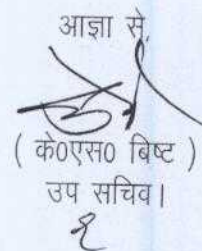 आज्ञा से,
( के0एस0 बिष्ट )
उप सचिव।